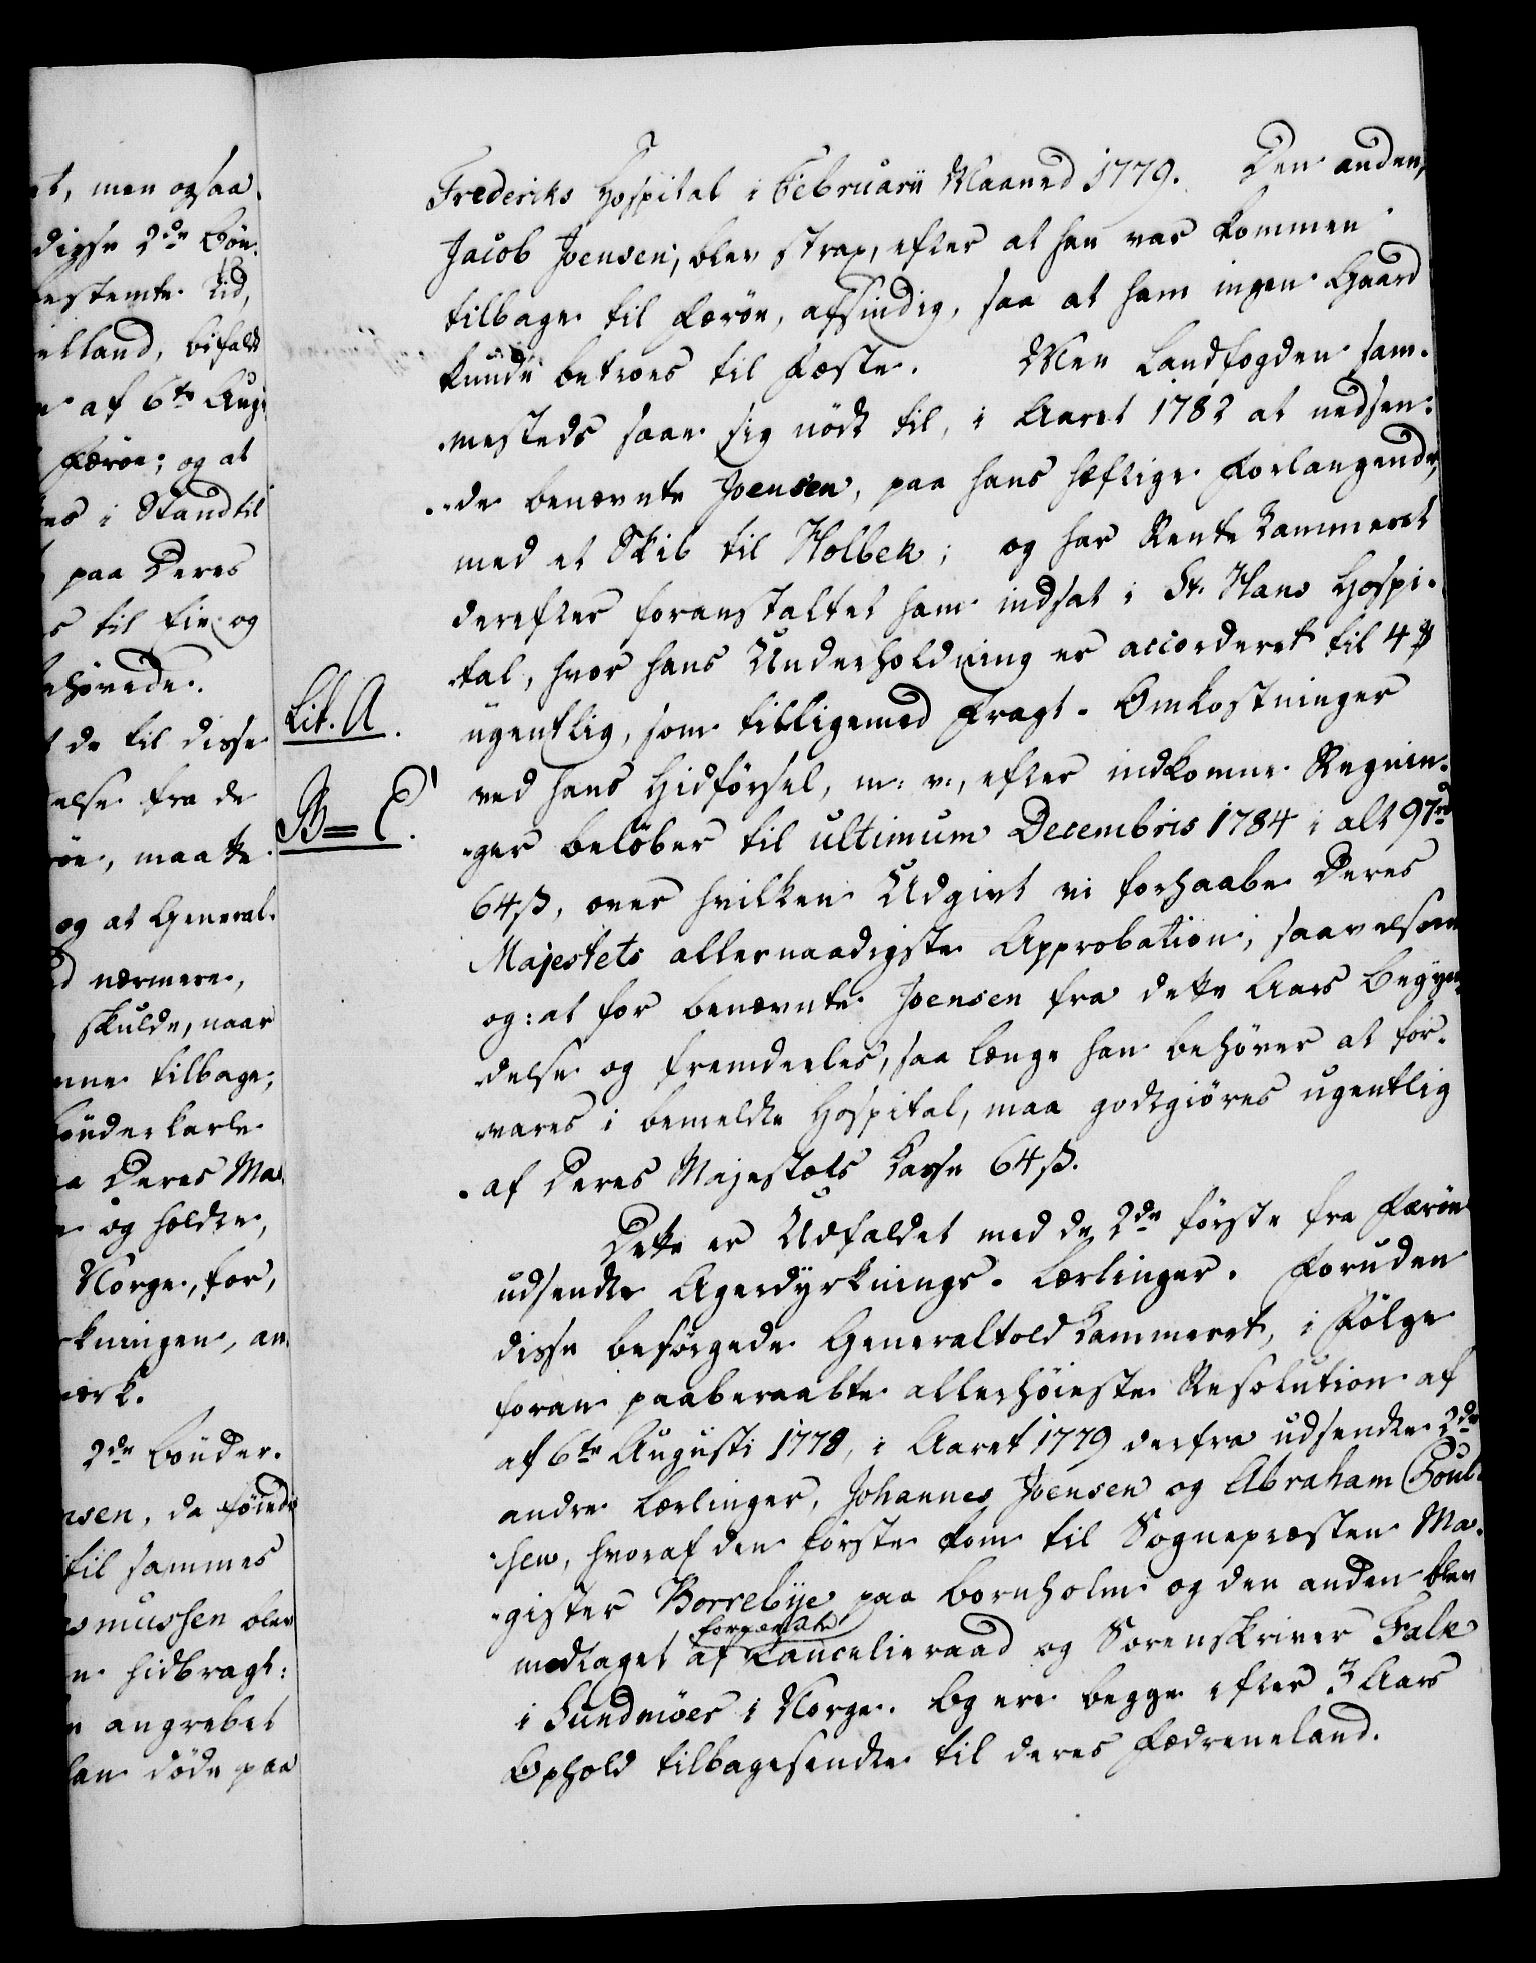 t, men ogsaa
digse 2de Bön-
estemte Tid,
elland, bifaldt
af 6te Aug:
Færöe; og at
es i Stand til
paa Deres
s til Fie og
ehövede.
de til disse
else fra de
öe, maatte
og at General-
d nærmere,
skulde, naar
nne tilbage,
önderkarle
a Deres Ma-
og holdte,
Norge, for,
rkningen, an-
mærk.
2de Bönder-
nsen, da föiede
til sammes
smussen blev
n hidbragt:
n angrebet
han döde paa
Lit. A.
B = C.
Frederiks Hospital i Februarii Maaned 1779. Den anden,
Jacob Joensen, blev strax, efter at han var kommen
tilbage til Færöe, afsindig, saa at ham ingen Gaard
kunde betroes til Fæste. Men Landfogden sam-
mesteds saae sig nödt til, i Aaret 1782 at nedsen-
de benævnte Joensen, paa hans heftige Forlangende,
med et Skib til Holbek; og har Rente Kammeret
derefter foranstaltet ham indsat i St. Hans Hospi-
tal, hvor hans Underholdning er accorderet til 4 ꝶ
ugentlig, som tilligemed Fragt-Omkostninger
ved hans Hidförsel, m: v:, efter indkomne Regnin-
ger belöber til ultimum Decembris 1784 i alt 97 rd
64 ß, over hvilken Udgivt vi forhaabe Deres
Majestets allernaadigste Approbation; saavelsom
og: at for benævnte Joensen fra dette Aars Begyn-
delse og fremdeeles, saa længe han behöver at for-
vares i bemeldte Hospital, maa godtgiöres ugentlig
af Deres Majestæts Casse 64 ß.
Dette er Udfaldet med de 2de förste fra Færöe
udsendte Agerdyrknings-Lærlinger. Foruden
disse besörgede Generaltoldkammeret, i Fölge
foran paaberaabte allerhöieste Resolution af
af 6te Augusti 1778, i Aaret 1779 derfra udsendte 2de
andre Lærlinger, Johannes Joensen og Abraham Poul-
sen, hvoraf den förste kom til Sognepræsten Ma-
gister Borrebye paa Bornholm og den anden blev
modtaget af Cancelieraad og Sorenskriver Falk
i Sundmöer i Norge. Og ere begge efter 3 Aars
Ophold tilbagesendte til deres Fædreneland.